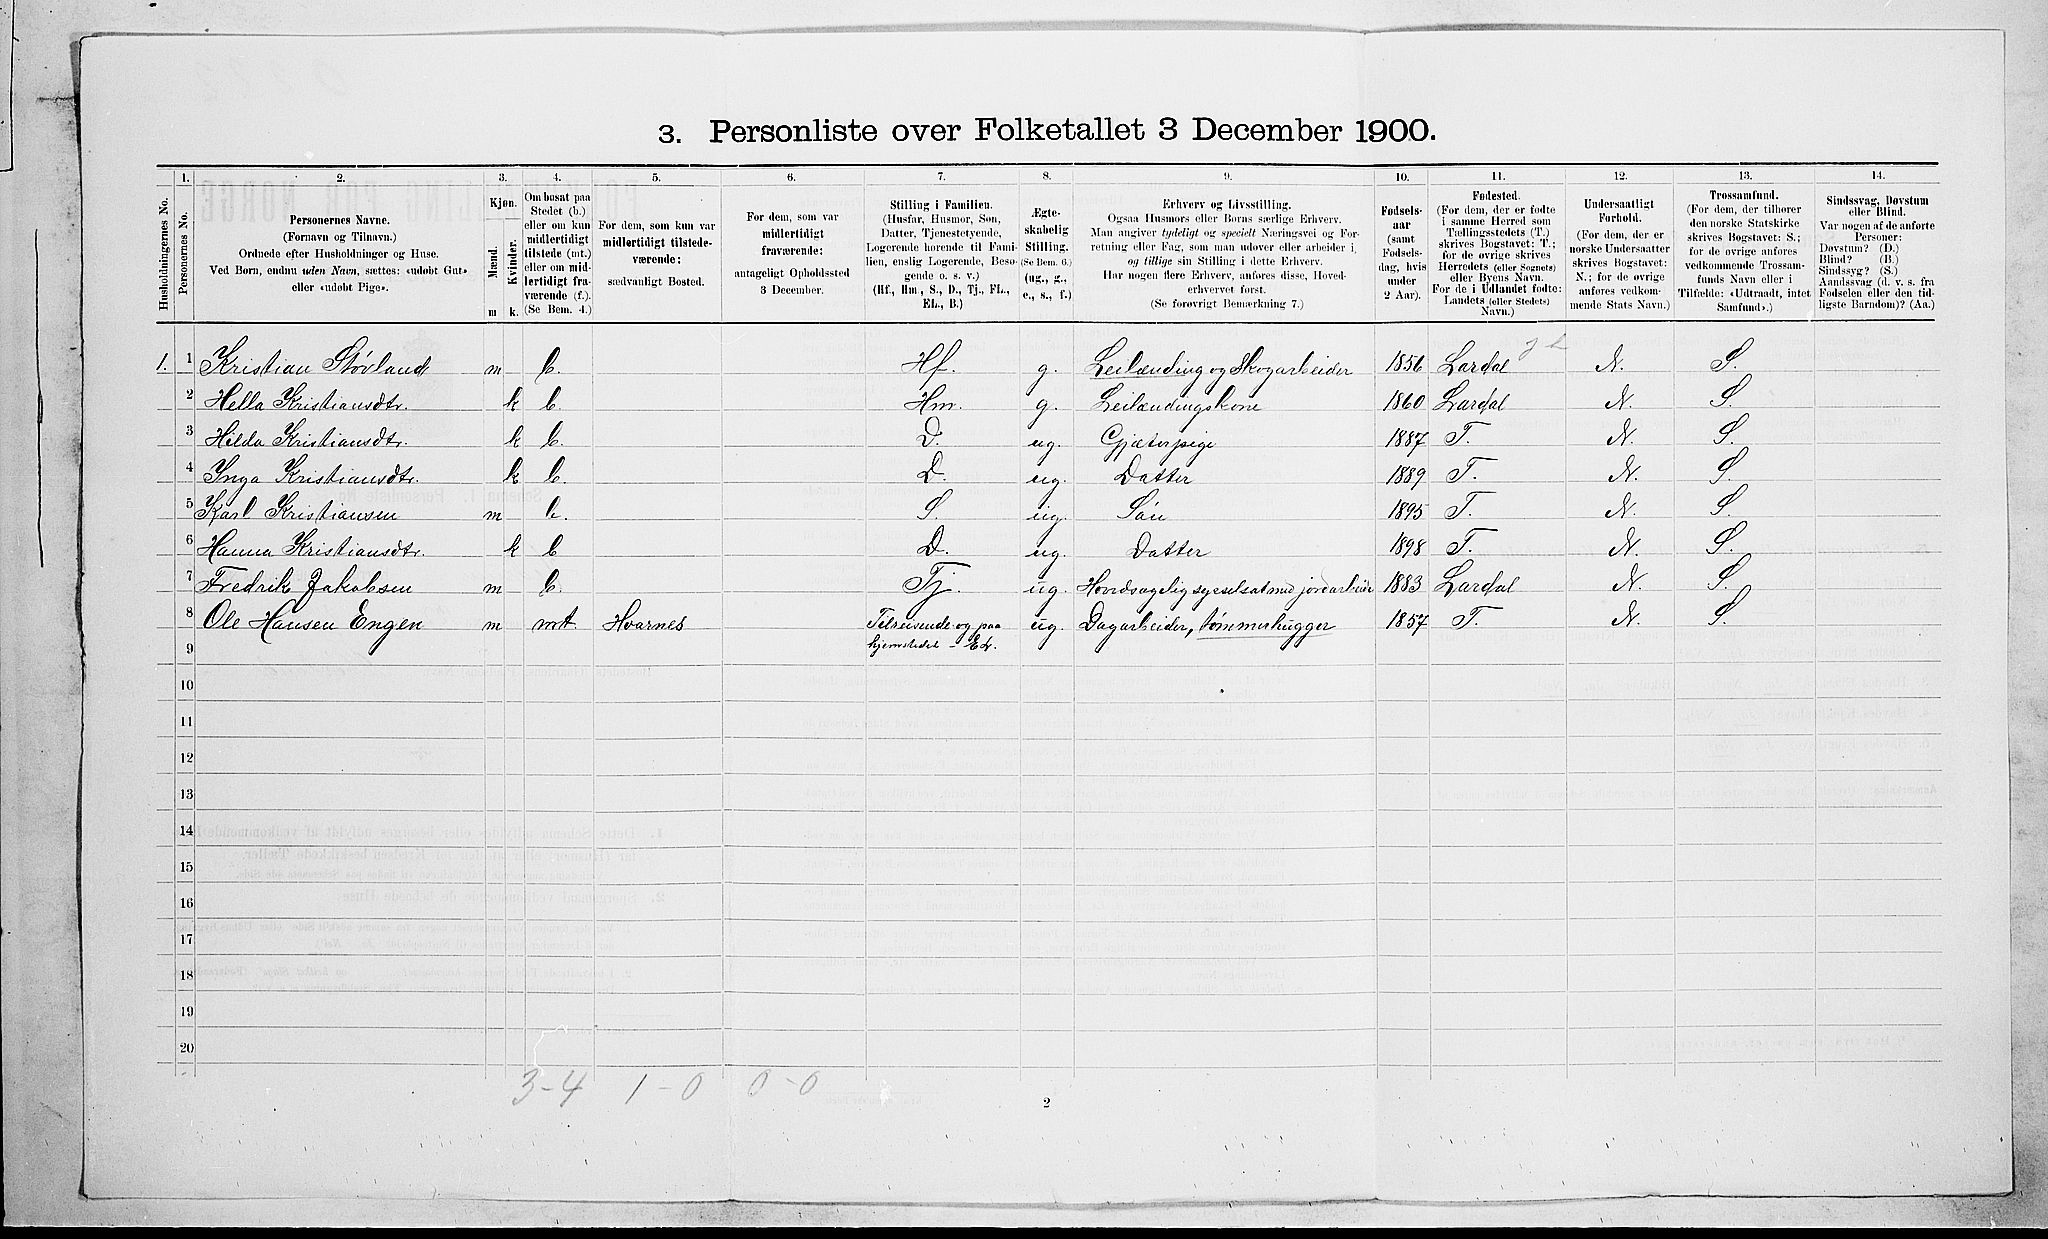 3. Personliste over Folketallet 3 December 1900.
1. 2. 3. 4. 5. 6. 7. 8. 9. 10. 11. 12. 13. 14.
Husholdningernes No.
Personernes No.
Personernes Navne.
(Fornavn og Tilnavn.)
Ordnede efter Husholdninger og Huse.
Ved Børn, endnu uden Navn, sættes: «udøbt Gut»
eller «udøbt Pige».
Kjøn.
Mænd.
Kvinder.
m k.
Om bosat paa
Stedet (b.)
eller om kun
midlertidigt
tilstede (mt.)
eller om mid-
lertidigt fra-
værende (f.).
(Se Bem. 4.)
For dem, som kun var
midlertidigt tilstede-
værende:
sædvanligt Bosted.
For dem, som var
midlertidigt
fraværende:
antageligt Opholdssted
3 December.
Stilling i Familien.
(Husfar, Husmor, Søn,
Datter, Tjenestetyende,
Logerende hørende til Fami-
lien, enslig Logerende, Besø-
gende o. s. v.)
(Hf., Hm., S., D., Tj., FL.,
EL., B.)
Ægte-
skabelig
Stilling.
(Se Bem. 6.)
(ug., g.,
e., s., f.)
Erhverv og Livsstilling.
Ogsaa Husmors eller Børns særlige Erhverv.
Man angiver tydeligt og specielt Næringsvei og For-
retning eller Fag, som man udøver eller arbeider i,
og tillige sin Stilling i dette Erhverv.
Har nogen flere Erhverv, anføres disse, Hoved-
erhvervet først.
(Se forøvrigt Bemærkning 7.)
Fødsels-
aar
(samt
Fødsels-
dag, hvis
under
2 Aar).
Fødested.
(For dem, der er fødte
i samme Herred som
Tællingsstedets (T.)
skrives Bogstavet: T.;
for de øvrige skrives
Herredets (eller Sognets)
eller Byens Navn.
For de i Udlandet fødte:
Landets (eller Stedets)
Navn.)
Undersaatligt
Forhold.
(For dem, der er
norske Undersaatter
skrives Bogstavet:
N.; for de øvrige
anføres vedkom-
mende Stats Navn.)
Trossamfund.
(For dem, der tilhører
den norske Statskirke
skrives Bogstavet: S.;
for de øvrige anføres
vedkommende Trossam-
funds Navn eller i
Tilfælde: «Udtraadt, intet
Samfund».)
Sindssvag, Døvstum
eller Blind.
Var nogen af de anførte
Personer:
Døvstum? (D.)
Blind? (B.)
Sindssyg? (S.)
Aandssvag (d. v. s. fra
Fødselen eller den tid-
ligste Barndom)? (Aa.)
1. 1 Kristian Støvland m b. Hf. g. Leilænding og Skogarbeider 1856 Lardal N. S.
2 Hella Kristiansdtr. k b. Hm. g. Leilændingskone 1860 Lardal N. S.
3 Hilda Kristiansdtr. k b. D. ug. Gjæterpige 1887 T. N. S.
4 Inga Kristiansdtr. k b. D. ug. Datter 1889 T. N. S.
5 Karl Kristiansen m b. S. ug. Søn 1895 T. N. S.
6 Hanna Kristiansdtr. k b D. ug. Datter 1898 T. N. S.
7 Fredrik Jakobsen m b. Tj. ug. Hovedsagelig sysselsat med jordarbeide 1883 Lardal N. S.
8 Ole Hansen Engen m mt. Hvarnes Tilreisende og paa ug. Dagarbeider, tømmerhugger 1857 T. N. S.
9 hjemstedet - EL.
10
11
12
13
14
15
16
17
18
19
20
3-4 1-0 0-0
2